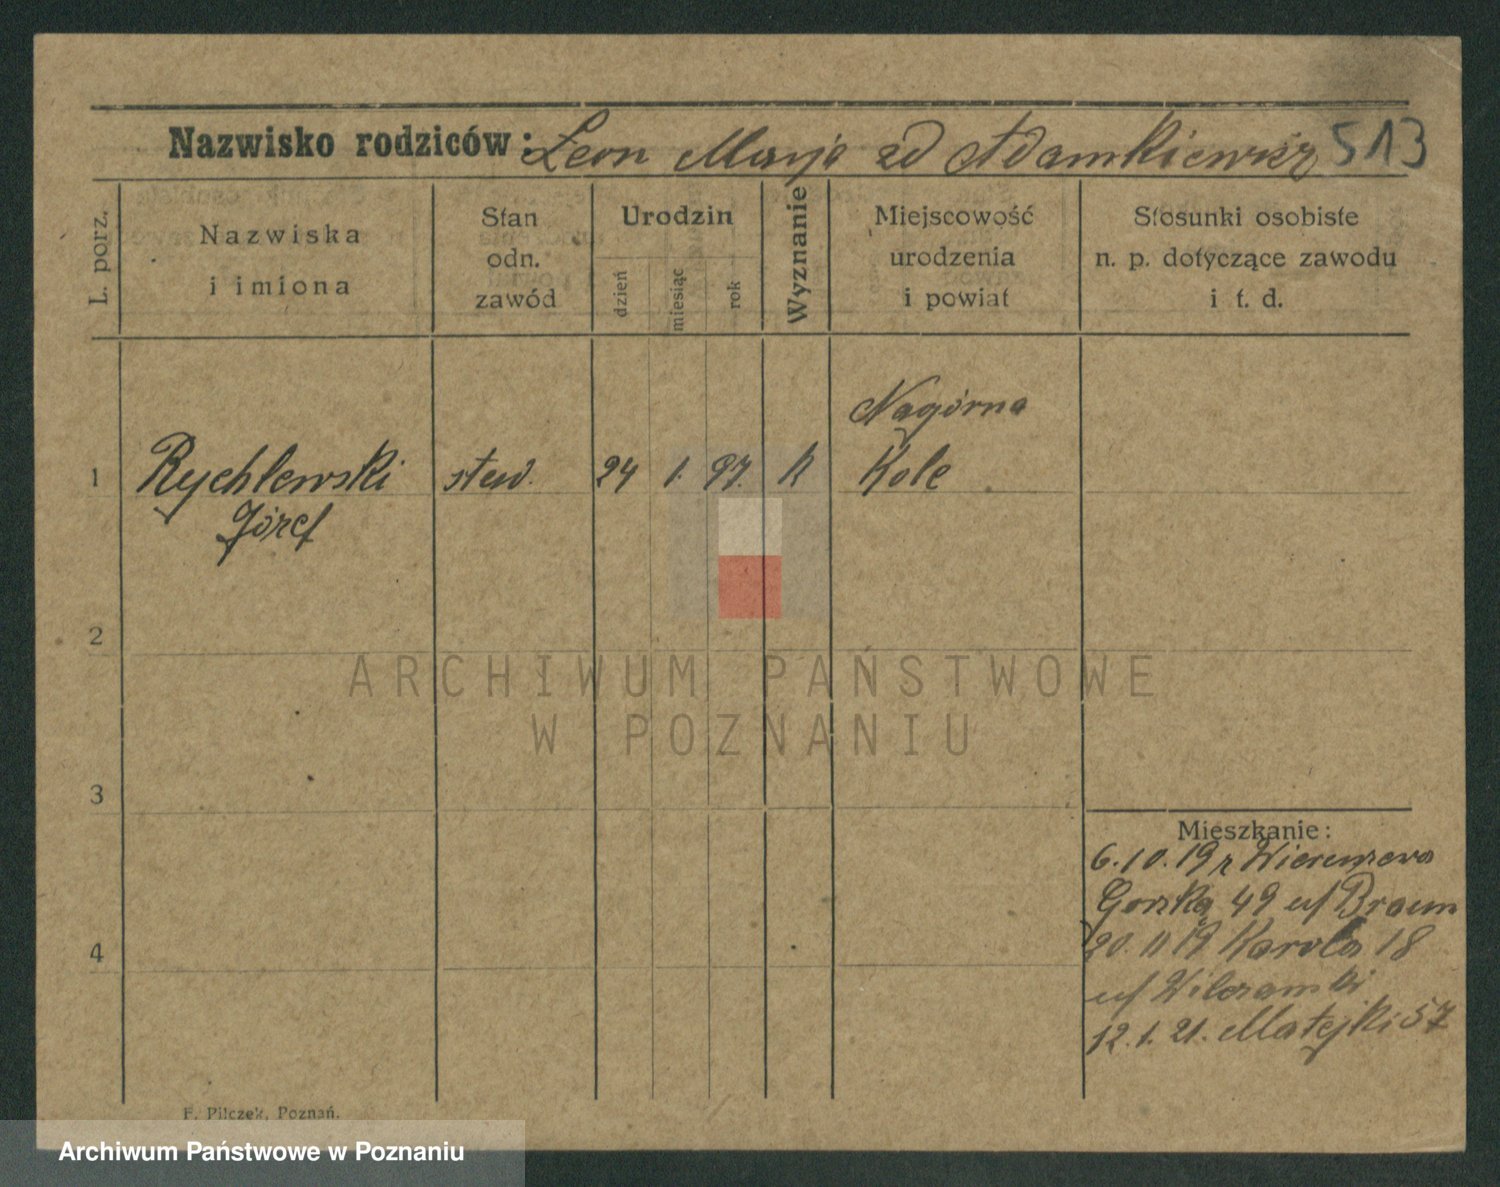 Nazwisko rodziców: Leon Marja zd Adamkiewicz 513
L. porz.
Nazwiska
i imiona
Stan
odn.
zawód
Urodzin
dzień
miesiąc
rok
Wyznanie
Miejscowość
urodzenia
i powiat
Stosunki osobiste
n. p. dotyczące zawodu
i t. d.
Nagórna
1 Rychlewski stud. 24 1. 97. K Kole
Józef
2
ARCHIWUM PAŃSTWOWE
W POZNANIU
3
Mieszkanie:
6.10.19 z
Górska 49 u/ Braun
4
20.11 19 Karola 18
u/
12.1.21. Matejki 57
F. Pilczek, Poznań.
Archiwum Państwowe w Poznaniu